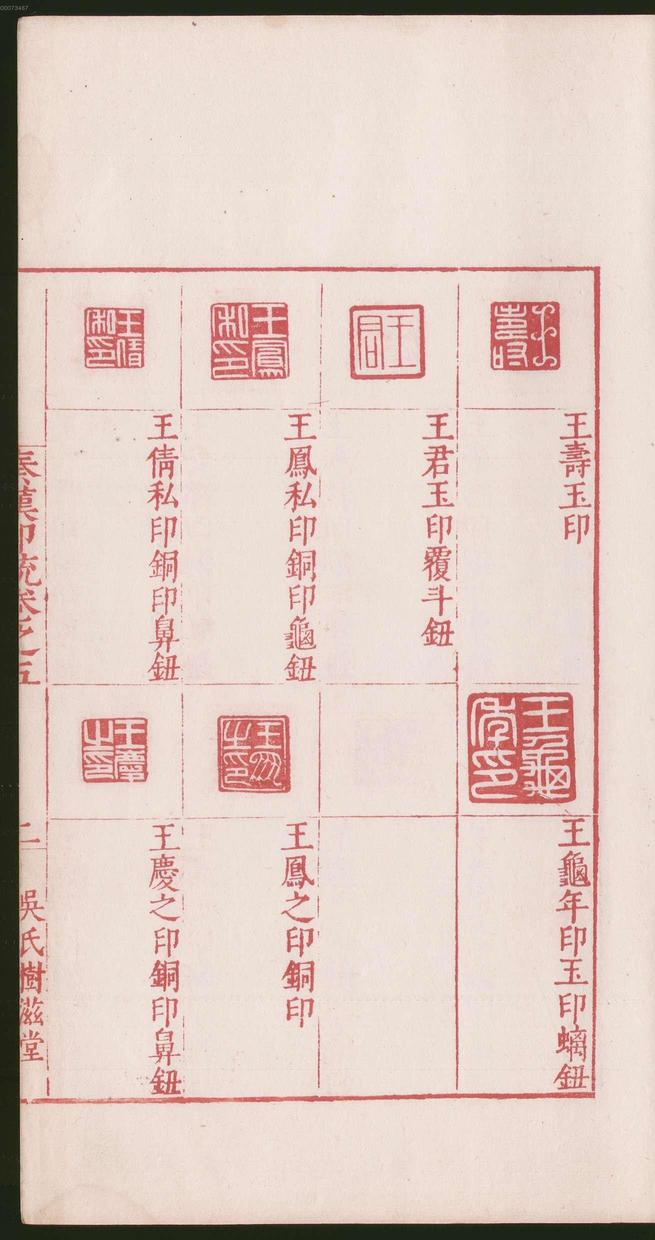 00073467
王壽玉印
王君玉印覆斗鈕
王鳳私印銅印龜鈕
王倩私印銅印鼻鈕
王龜年印玉印螭鈕
王鳳之印銅印
王慶之印銅印鼻鈕
秦漢印統卷之五
二
吳氏樹滋堂